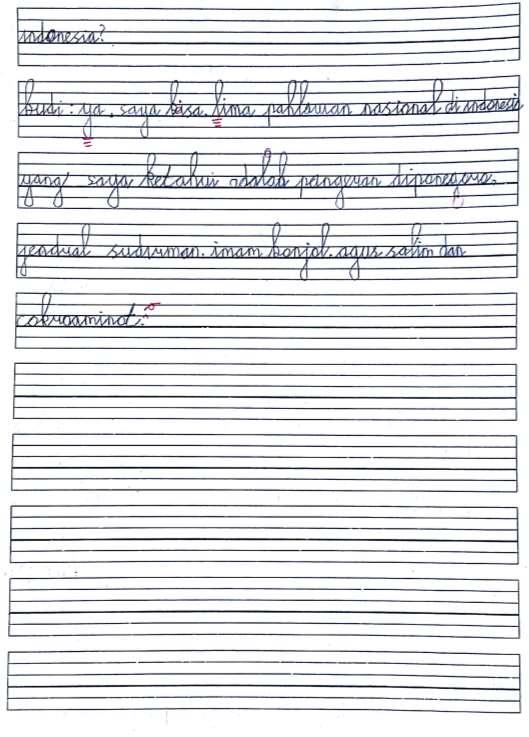 indonesia?
budi : ya. saya bisa. lima pahlawan nasional di indonesia
yang saya ketahui adalah pangeran diponegoro.
jendral sudirman. imam bonjol. agus salim dan
cokroaminot.